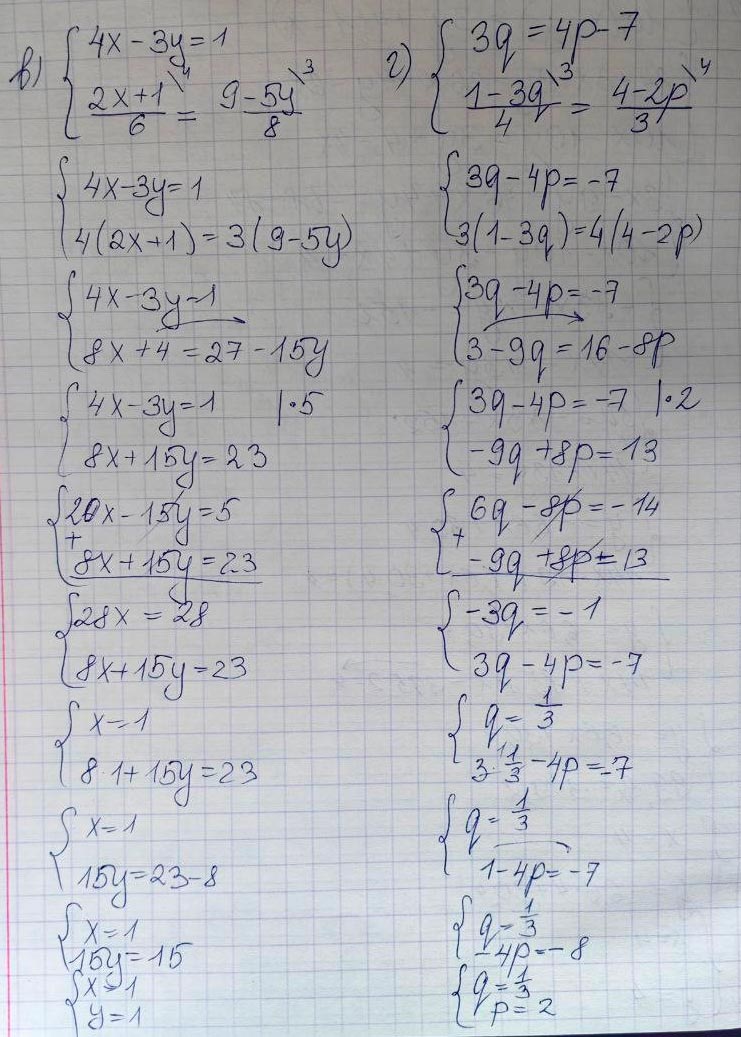 в) { 4x - 3y = 1
(2x+1)/6 \4 = (9-5y)/8 \3
{ 4x - 3y = 1
4(2x+1) = 3(9-5y)
{ 4x - 3y = 1
8x + 4 = 27 - 15y
{ 4x - 3y = 1 |·5
8x + 15y = 23
{ 20x - 15y = 5
+ 8x + 15y = 23
{ 28x = 28
8x + 15y = 23
{ x = 1
8·1 + 15y = 23
{ x = 1
15y = 23 - 8
{ x = 1
15y = 15
{ x = 1
y = 1
г) { 3q = 4p - 7
(1-3q)/4 \3 = (4-2p)/3 \4
{ 3q - 4p = -7
3(1-3q) = 4(4-2p)
{ 3q - 4p = -7
3 - 9q = 16 - 8p
{ 3q - 4p = -7 |·2
-9q + 8p = 13
{ 6q - 8p = -14
+ -9q + 8p = 13
{ -3q = -1
3q - 4p = -7
{ q = 1/3
3·1/3 - 4p = -7
{ q = 1/3
1 - 4p = -7
{ q = 1/3
-4p = -8
{ q = 1/3
p = 2